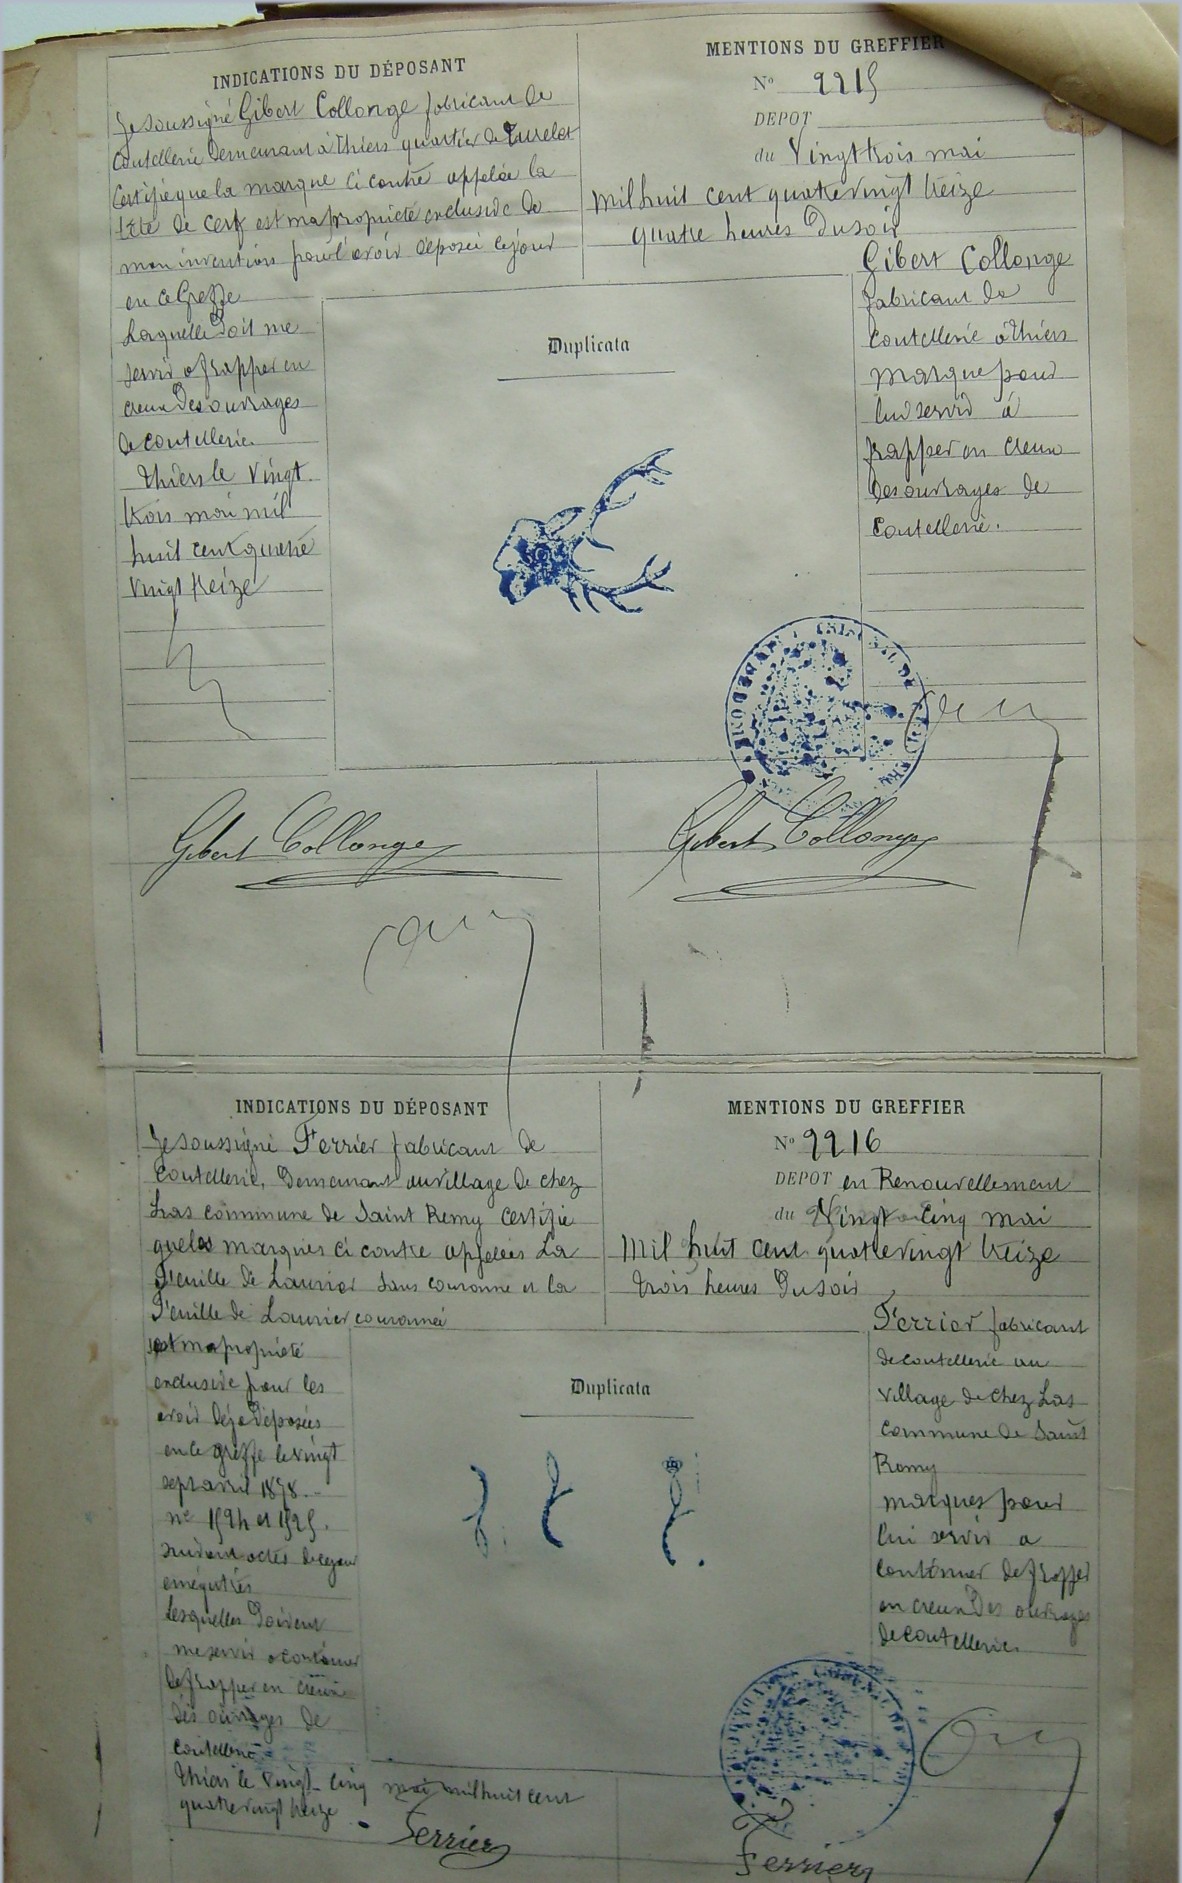 INDICATIONS DU DÉPOSANT
Je soussigné Gibert Collonge fabricant de
Coutellerie demeurant à Thiers quartier de Turelet
Certifie que la marque ci contre appelée la
tête de cerf est ma propriété exclusive de
mon invention pour l'avoir déposée ce jour
en ce Greffe
Laquelle doit me
servir à frapper en
creux des ouvrages
de coutellerie
Thiers le vingt
trois mai mil
huit cent quatre
vingt treize
MENTIONS DU GREFFIER
No 2215
DEPOT
du Vingt trois mai
Mil huit cent quatre vingt treize
quatre heures du soir
Gibert Collonge
fabricant de
coutellerie à Thiers
Marque pour
lui servir à
frapper en creux
des ouvrages de
Coutellerie.
Duplicata
Gibert Collonge
Gibert Collonge
INDICATIONS DU DÉPOSANT
Je soussigné Ferrier fabricant de
Coutellerie, demeurant au village de chez
Las commune de Saint Remy certifie
que les marques ci contre appelées La
Feuille de Laurier sans couronne et la
Feuille de Laurier couronnée
est ma propriété
exclusive pour les
avoir déjà déposées
en ce greffe le vingt
sept avril 1878.
no 1524 et 1525.
suivant actes de ce jour
enregistrés
Lesquelles doivent
me servir à continuer
de frapper en creux
des ouvrages de
coutellerie
Thiers le vingt-cinq mai mil huit cent
quatre vingt treize
Ferrier
MENTIONS DU GREFFIER
No 2216
DEPOT en Renouvellement
du Vingt cinq mai
Mil huit cent quatre vingt treize
trois heures du soir
Ferrier fabricant
de coutellerie au
village de chez Las
commune de Saint
Remy
marques pour
lui servir à
continuer de frapper
en creux des ouvrages
de coutellerie.
Duplicata
Ferrier